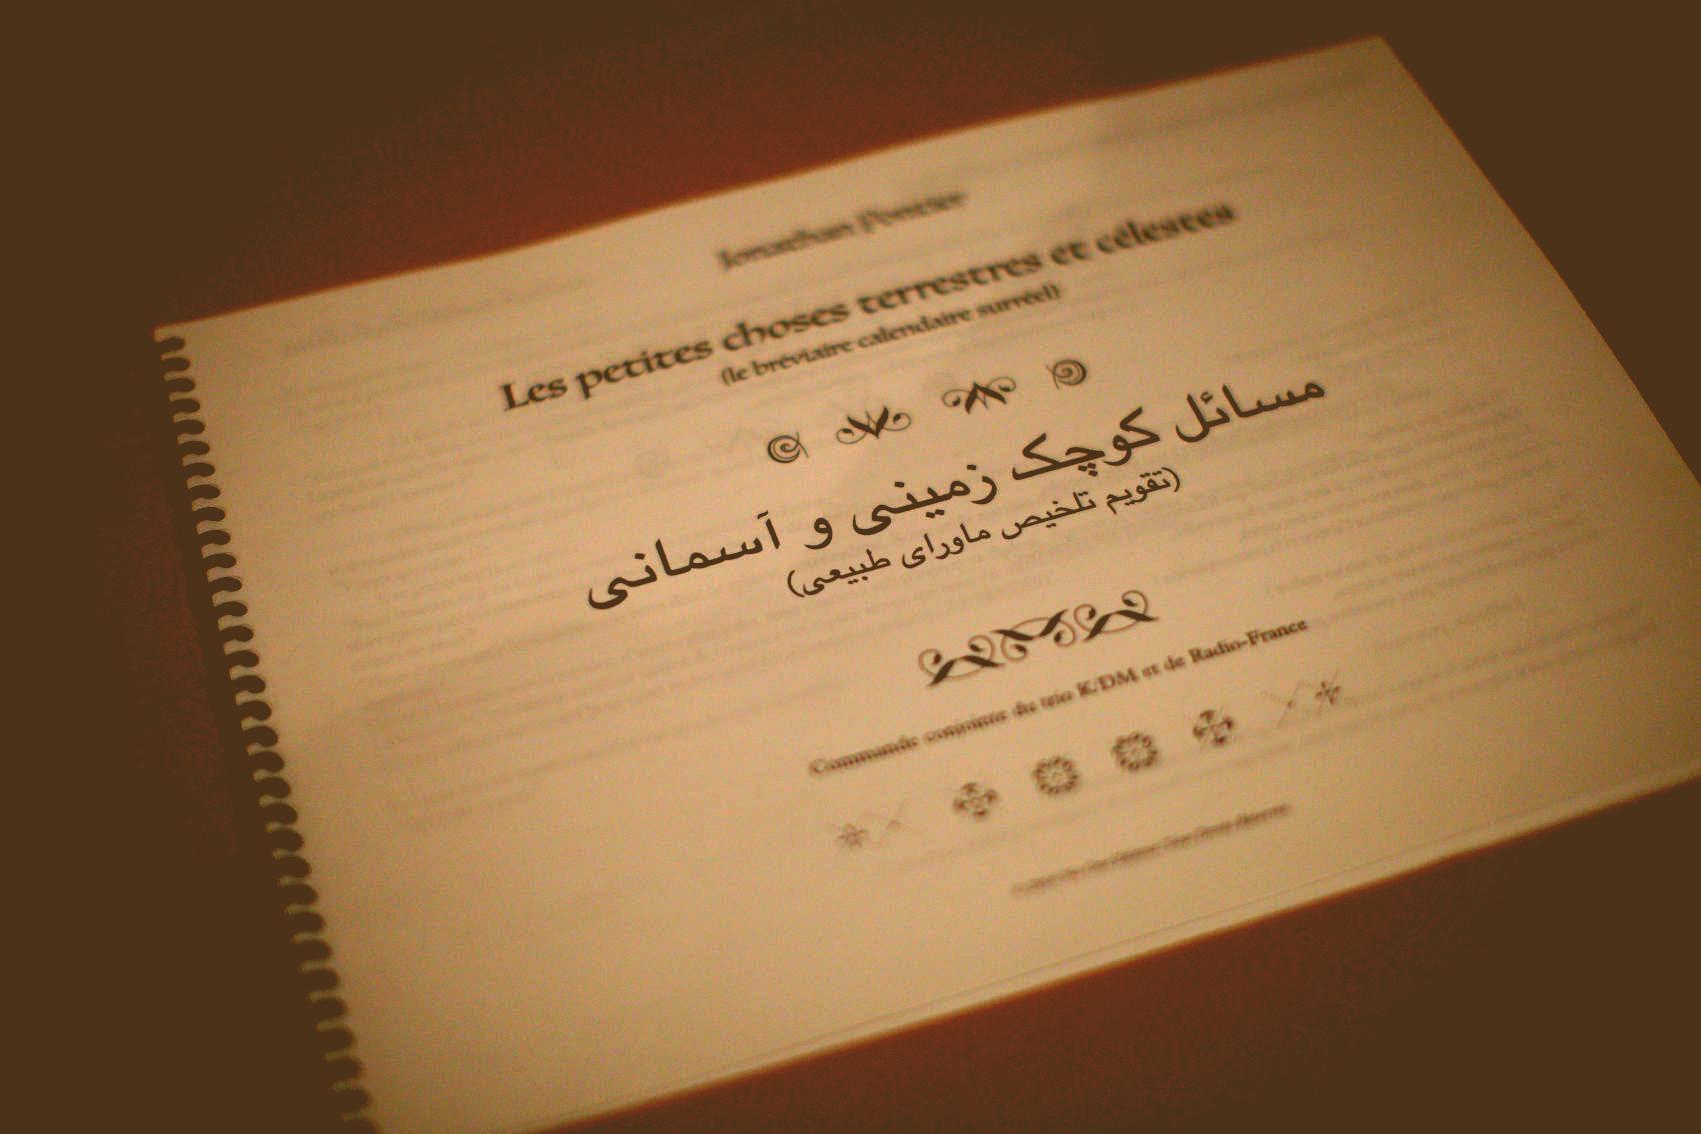 Jonathan Pontier
Les petites choses terrestres et célestes
(le bréviaire calendaire surréel)
مسائل کوچک زمینی و آسمانی
(تقویم تلخیص ماورای طبیعی)
Commande conjointe du trio K/DM et de Radio-France